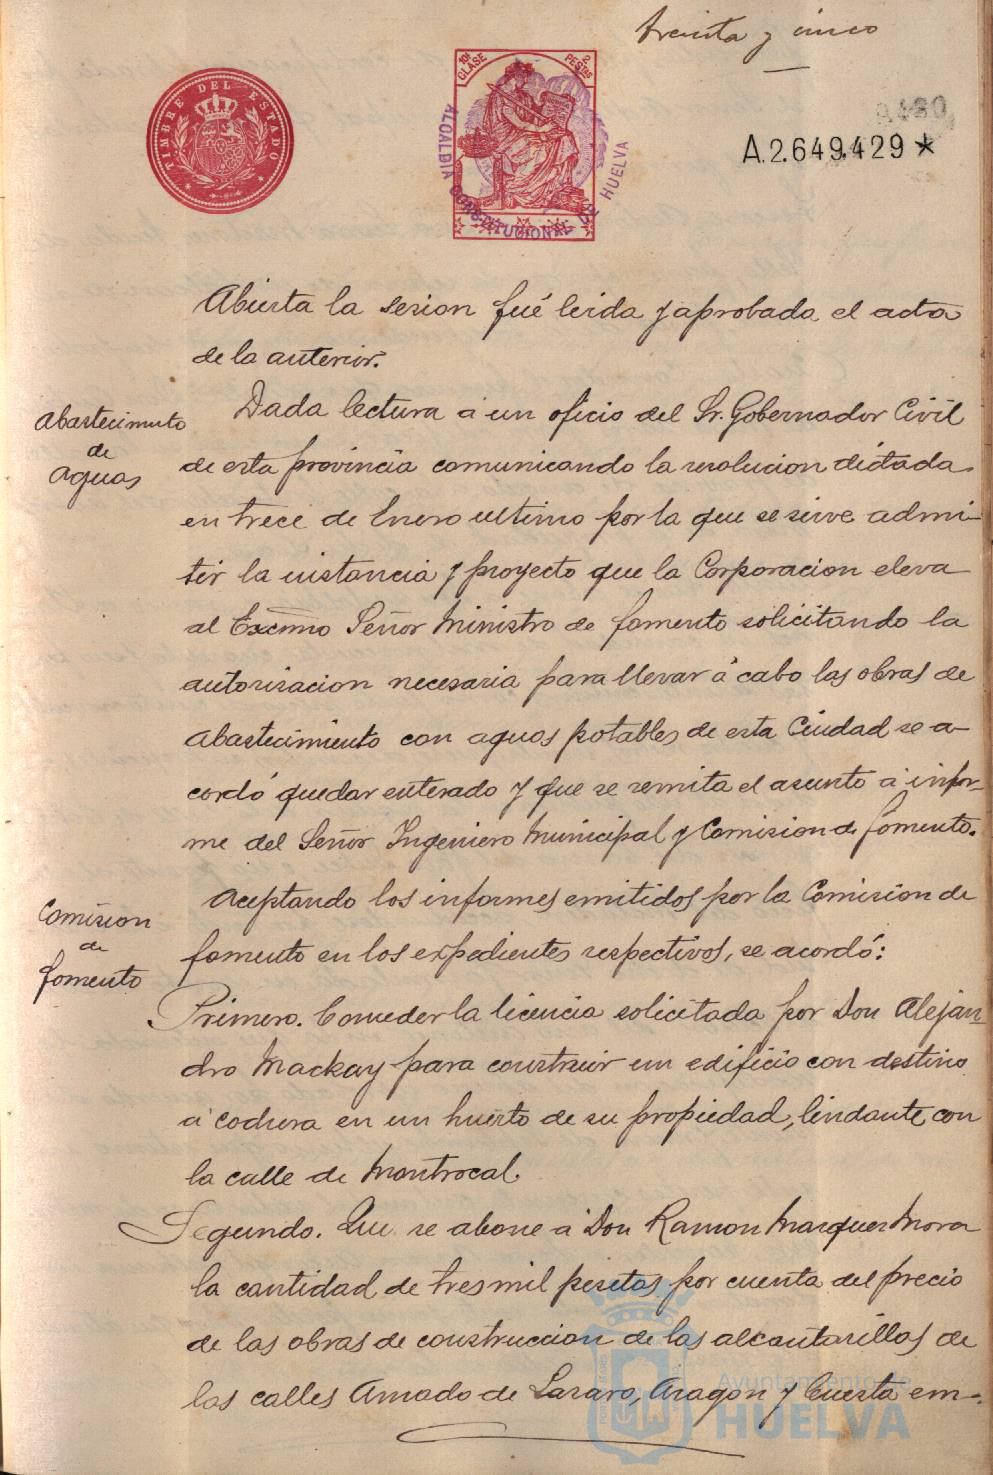 treinta y cinco
TIMBRE DEL ESTADO
10ª CLASE 2 PESETAS
ALCALDIA CONSTITUCIONAL DE HUELVA
A.2.649.429*
Abierta la sesion fué leida y aprobada el acta
de la anterior.
Abastecimiento
de
aguas
Dada lectura á un oficio del Sr. Gobernador Civil
de esta provincia comunicando la resolucion dictada
en trece de Enero ultimo por la que se sirve admi-
tir la instancia y proyecto que la Corporacion eleva
al Excmo Señor Ministro de fomento solicitando la
autorisacion necesaria para llevar á cabo las obras de
abastecimiento con aguas potables de esta Ciudad se a-
cordó quedar enterado y que se remita el asunto á infor-
me del Señor Ingeniero Municipal y Comision de fomento.
Comision
de
fomento
Aceptando los informes emitidos por la Comision de
fomento en los expedientes respectivos, se acordó:
Primero. Conceder la licencia solicitada por Don Alejan-
dro Mackay para construir un edificio con destino
á cochera en un huerto de su propiedad, lindante con
la calle de Montrocal.
Segundo. Que se abone á Don Ramon Marquez Mora
la cantidad de tres mil pesetas por cuenta del precio
de las obras de construccion de las alcantarillas de
las calles Amado de Lazaro, Aragon y Cuesta em-
Ayuntamiento de
HUELVA